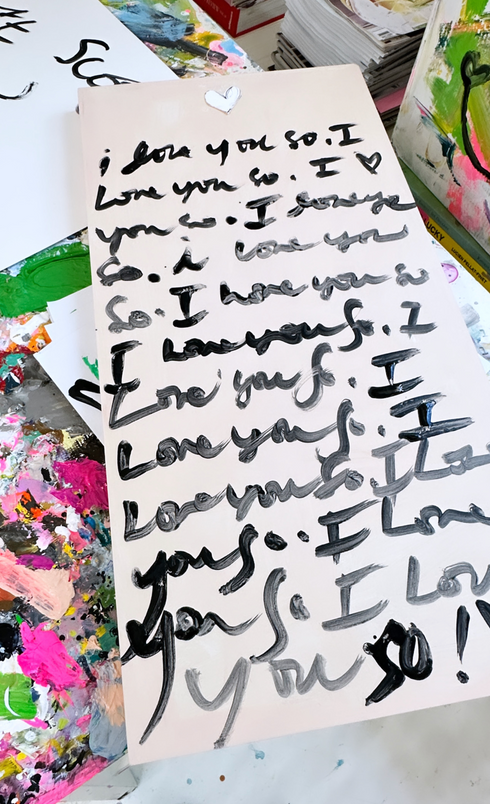 i love you so. I
Love you so. I ♡
you so. I love
so. i love you
so. I love you so
I Love you So. I
Love you So. I
Love you So. I
Love you So. I Lo
you So. I Love
you So. I Lov
you so!
LUCKY